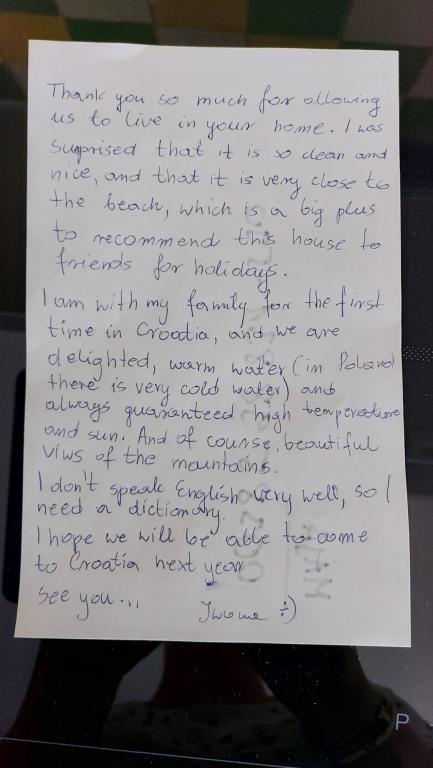 Thank you so much for allowing
us to live in your home. I was
suprised that it is so clean and
nice, and that it is very close to
the beach, which is a big plus
to recommend this house to
friends for holidays.
I am with my family for the first
time in Croatia, and we are
delighted, warm water (in Poland
there is very cold water) and
always guaranteed high temperature
and sun. And of course, beautiful
viws of the mountains.
I don't speak English very well, so I
need a dictionary.
I hope we will be able to come
to Croatia next year
See you...
:)
P